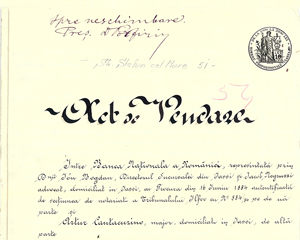 spre neschimbare.
Str. Stefan cel Mare 51 -
Act de Vendare
Între Banca Naţionala a României, representată prin
Dnul Ion Bogdan, Directorul Sucursalei din Iassi şi Iacob Negruzzi
advocat, domiciliat in Iassi, cu Procura din 16 Juniu 1884 autentificată
de secţiunea de notariat a Tribunalului Ilfov cu No 884 pe de o
parte şi
Artur Cantacuzino, major, domiciliat in Iassi, de altă
parte